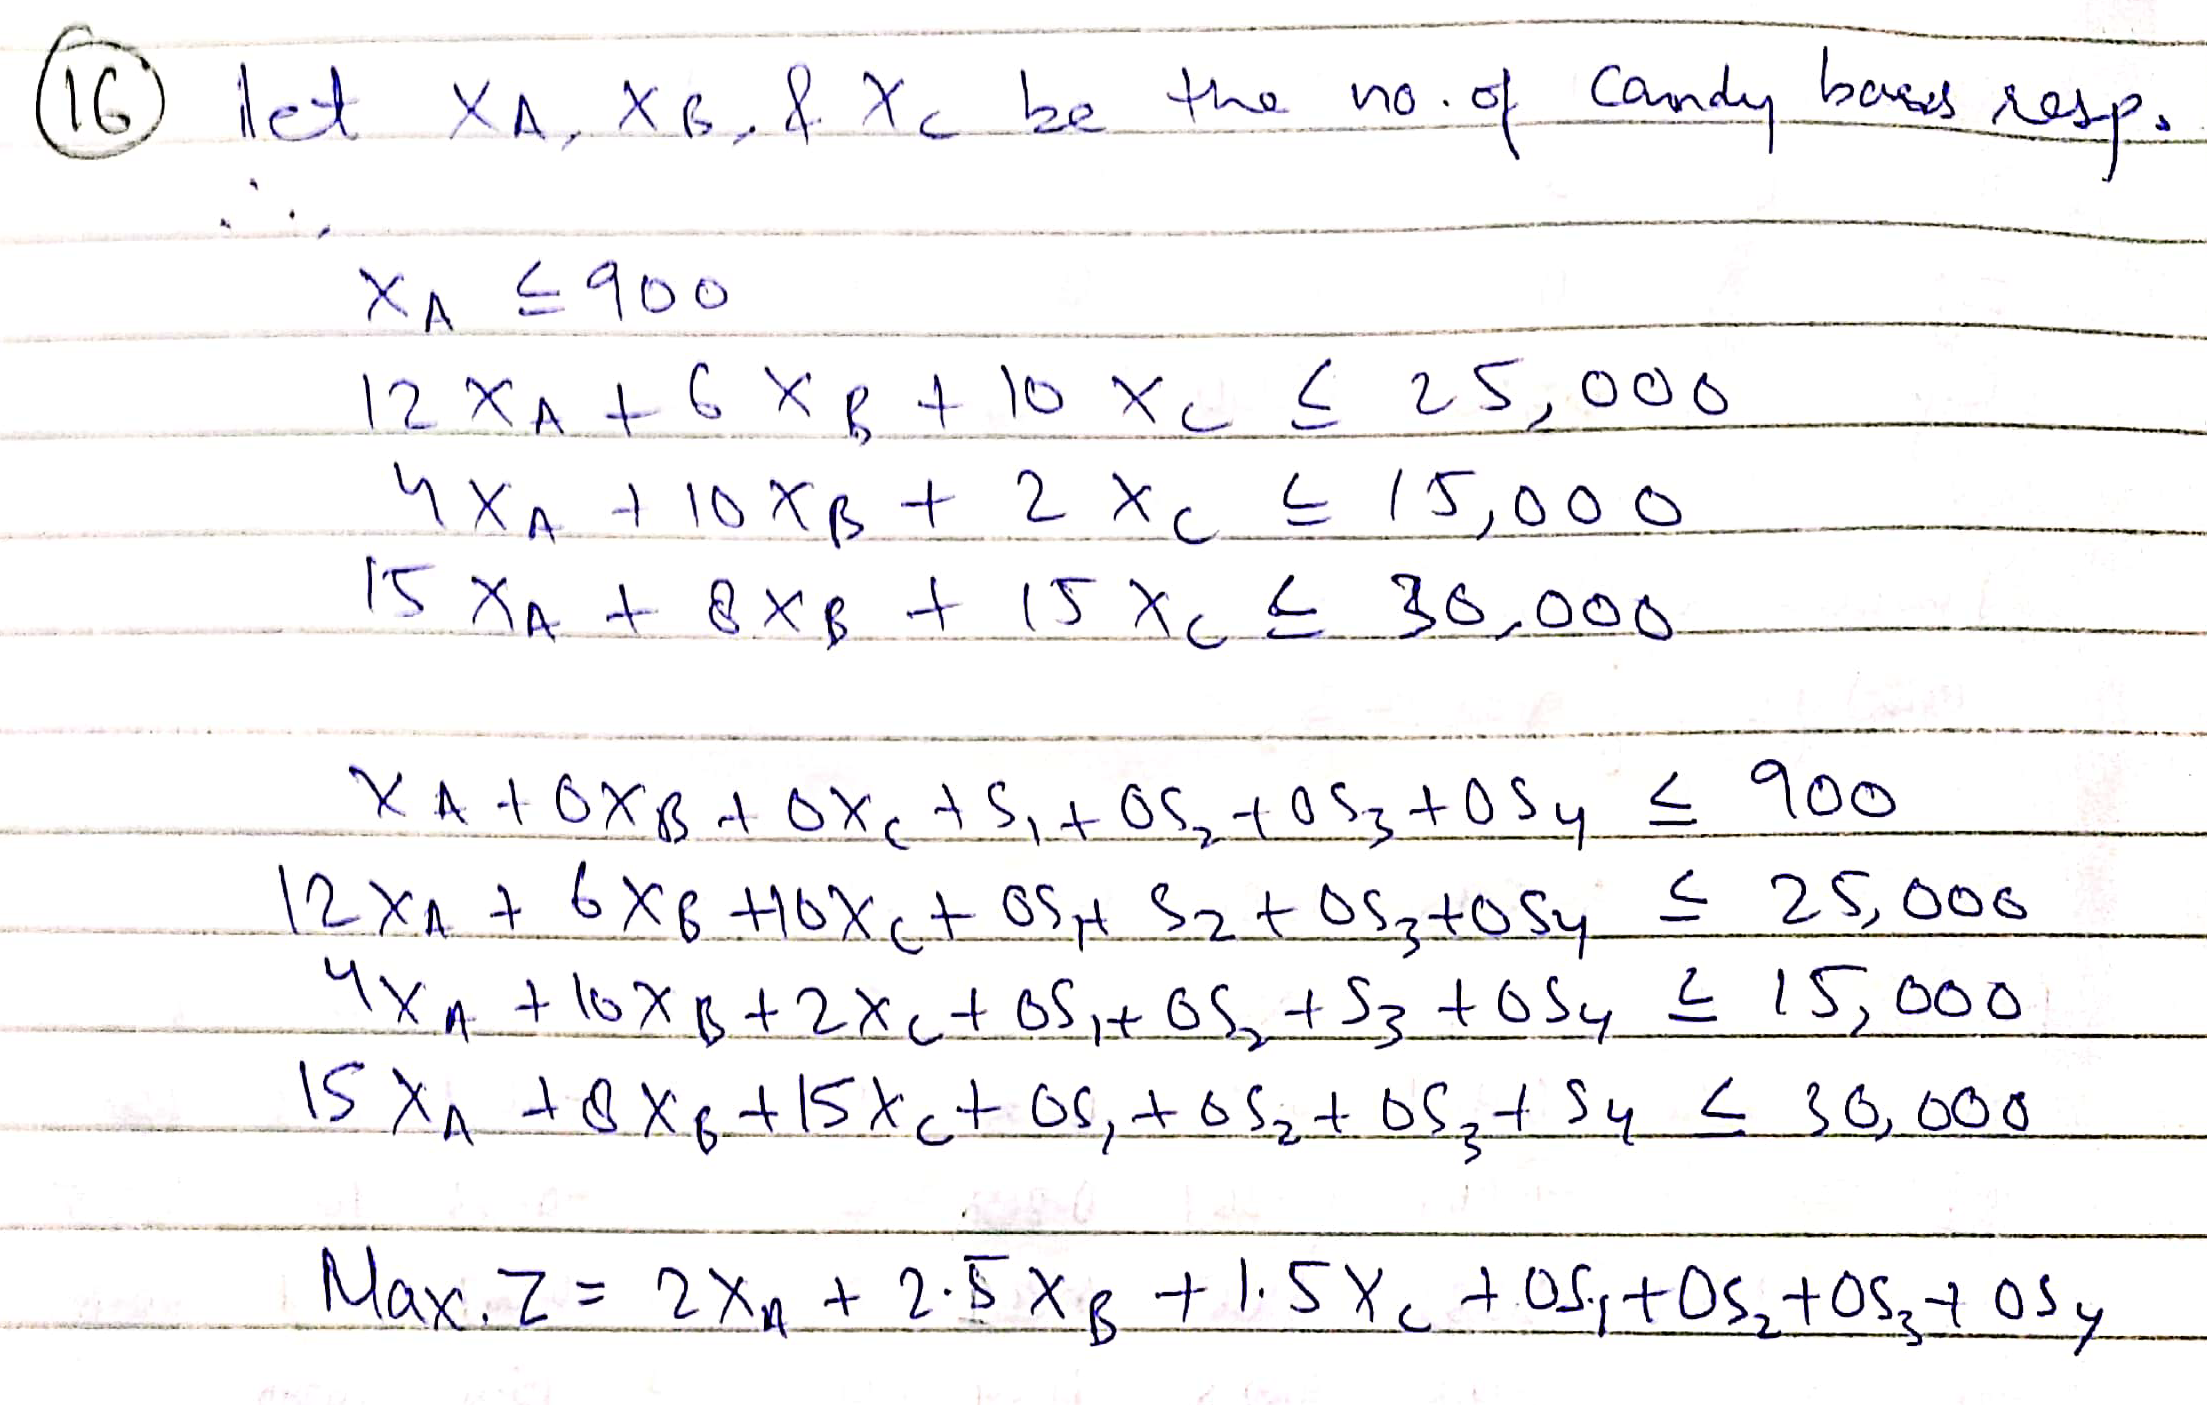 16 let XA, XB, & XC be the no. of Candy bars resp.
∴,
XA ≤ 900
12 XA + 6 XB + 10 XC ≤ 25,000
4 XA + 10 XB + 2 XC ≤ 15,000
15 XA + 8 XB + 15 XC ≤ 30,000
XA + 0XB + 0XC + S1 + 0S2 + 0S3 + 0S4 ≤ 900
12 XA + 6 XB + 10XC + 0S1 + S2 + 0S3 + 0S4 ≤ 25,000
4 XA + 10 XB + 2 XC + 0S1 + 0S2 + S3 + 0S4 ≤ 15,000
15 XA + 8 XB + 15 XC + 0S1 + 0S2 + 0S3 + S4 ≤ 30,000
Max. Z = 2XA + 2.5 XB + 1.5 XC + 0S1 + 0S2 + 0S3 + 0S4